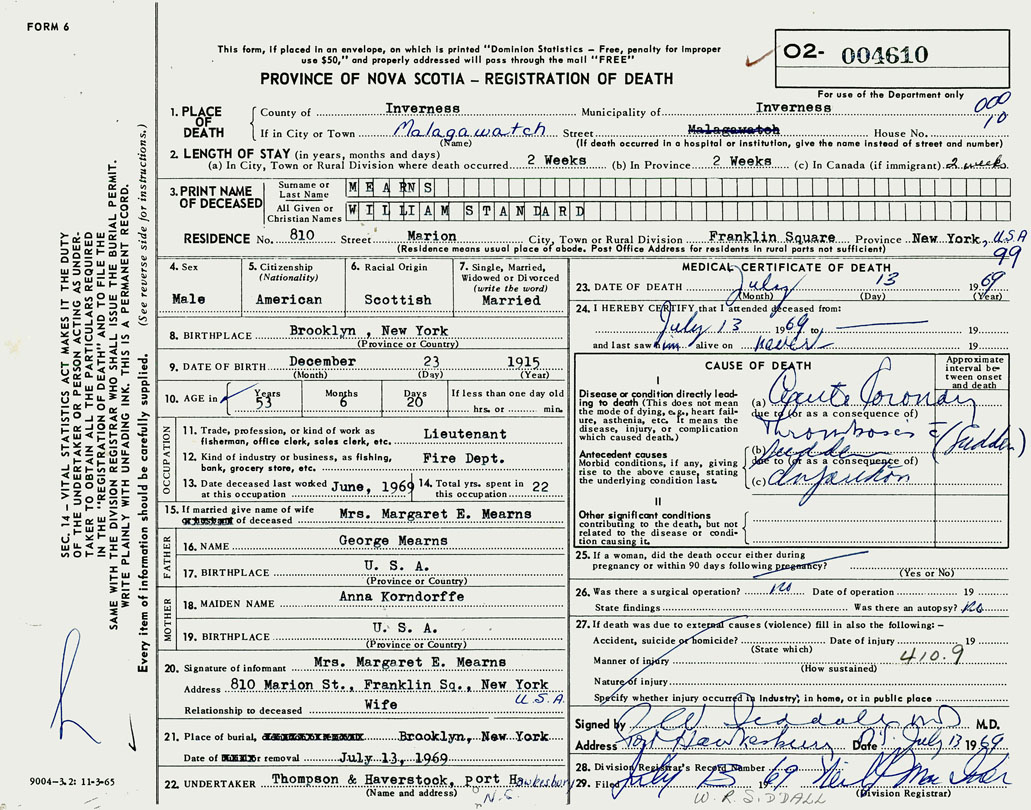 FORM 6
This form, if placed in an envelope, on which is printed "Dominion Statistics – Free, penalty for improper
use $50," and properly addressed will pass through the mail "FREE"
O2- 004610
PROVINCE OF NOVA SCOTIA – REGISTRATION OF DEATH
For use of the Department only
000
10
1. PLACE OF DEATH
County of Inverness Municipality of Inverness
If in City or Town Malagawatch Street Malagawatch House No.
(Name) (If death occurred in a hospital or institution, give the name instead of street and number)
2. LENGTH OF STAY (in years, months and days)
(a) In City, Town or Rural Division where death occurred 2 Weeks (b) In Province 2 Weeks (c) In Canada (if immigrant) 2 weeks
3. PRINT NAME OF DECEASED
Surname or Last Name MEARNS
All Given or Christian Names WILLIAM STANDARD
RESIDENCE No. 810 Street Marion City, Town or Rural Division Franklin Square Province New York, USA
(Residence means usual place of abode. Post Office Address for residents in rural parts not sufficient)
99
4. Sex
Male
5. Citizenship (Nationality)
American
6. Racial Origin
Scottish
7. Single, Married, Widowed or Divorced (write the word)
Married
8. BIRTHPLACE Brooklyn , New York
(Province or Country)
9. DATE OF BIRTH December 23 1915
(Month) (Day) (Year)
10. AGE in Years Months Days If less than one day old
53 6 20 hrs. or min.
OCCUPATION
11. Trade, profession, or kind of work as fisherman, office clerk, sales clerk, etc. Lieutenant
12. Kind of industry or business, as fishing, bank, grocery store, etc. Fire Dept.
13. Date deceased last worked at this occupation June, 1969
14. Total yrs. spent in this occupation 22
15. If married give name of wife of deceased Mrs. Margaret E. Mearns
FATHER
16. NAME George Mearns
17. BIRTHPLACE U. S. A.
(Province or Country)
MOTHER
18. MAIDEN NAME Anna Korndorffe
19. BIRTHPLACE U. S. A.
(Province or Country)
20. Signature of informant Mrs. Margaret E. Mearns
Address 810 Marion St., Franklin Sq., New York
U.S.A.
Relationship to deceased Wife
21. Place of burial, Brooklyn, New York
Date of or removal July 13, 1969
22. UNDERTAKER Thompson & Haverstock, port Hawkesbury
(Name and address) N.S.
MEDICAL CERTIFICATE OF DEATH
23. DATE OF DEATH July 13 1969
(Month) (Day) (Year)
24. I HEREBY CERTIFY that I attended deceased from:
July 13 1969 to 19
and last saw him alive on never 19
CAUSE OF DEATH
Approximate interval between onset and death
I
Disease or condition directly leading to death (This does not mean the mode of dying, e.g., heart failure, asthenia, etc. It means the disease, injury, or complication which caused death.)
(a) Acute Coronary
due to (or as a consequence of)
Thrombosis c̄ (Sudden)
Antecedent causes
Morbid conditions, if any, giving rise to the above cause, stating the underlying condition last.
(b) Sudden
due to (or as a consequence of)
(c)
II
Other significant conditions contributing to the death, but not related to the disease or condition causing it.
25. If a woman, did the death occur either during pregnancy or within 90 days following pregnancy?
(Yes or No)
26. Was there a surgical operation? no Date of operation 19
State findings Was there an autopsy? no
27. If death was due to external causes (violence) fill in also the following: –
Accident, suicide or homicide? Date of injury 19
(State which)
Manner of injury 410.9
(How sustained)
Nature of injury
Specify whether injury occurred in Industry, in home, or in public place
Signed by Siddall MD M.D.
Address Port Hawkesbury Date July 13 1969
28. Division Registrar's Record Number
29. Filed July 13 1969
(Division Registrar)
W. R. SIDDALL
SEC. 14 – VITAL STATISTICS ACT MAKES IT THE DUTY
OF THE UNDERTAKER OR PERSON ACTING AS UNDER-
TAKER TO OBTAIN ALL THE PARTICULARS REQUIRED
IN THE "REGISTRATION OF DEATH" AND TO FILE THE
SAME WITH THE DIVISION REGISTRAR WHO SHALL ISSUE THE BURIAL PERMIT.
WRITE PLAINLY WITH UNFADING INK. THIS IS A PERMANENT RECORD.
Every item of information should be carefully supplied. (See reverse side for instructions.)
9004–3.2: 11-3-65